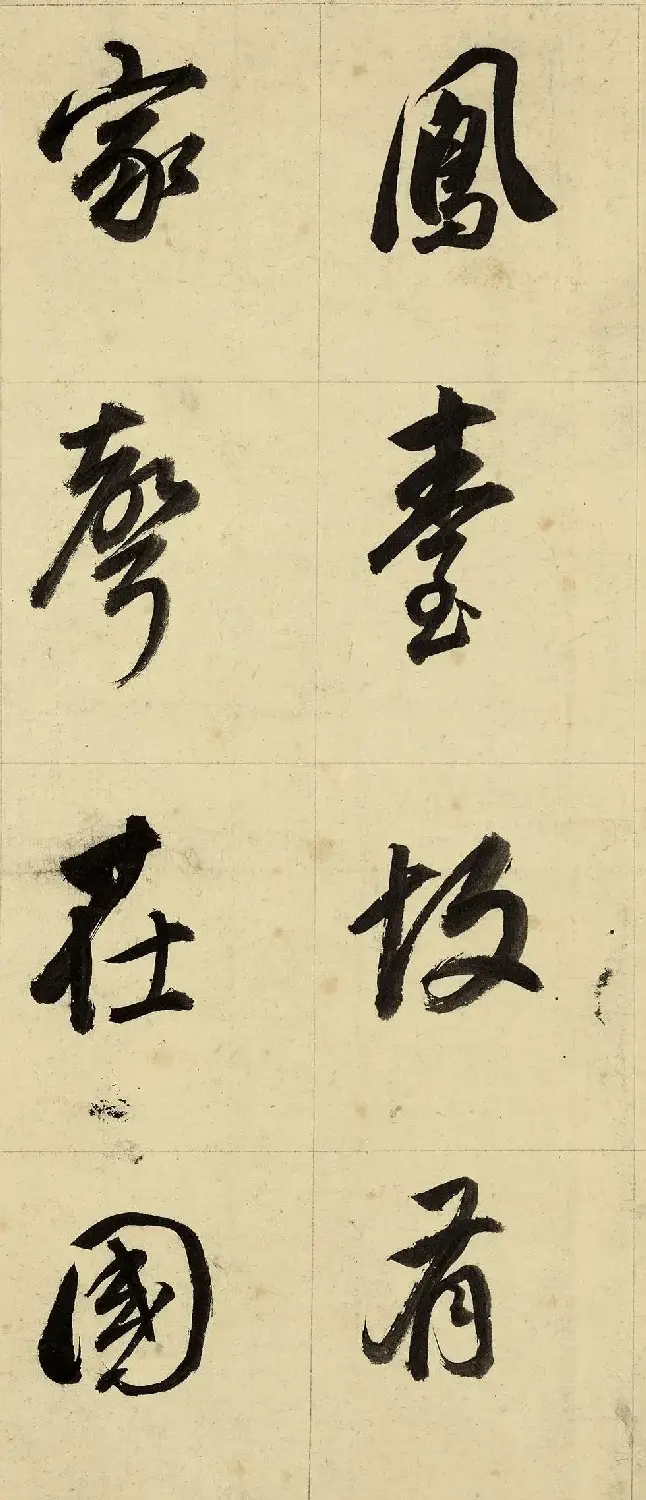 鳳臺故有
家聲在國